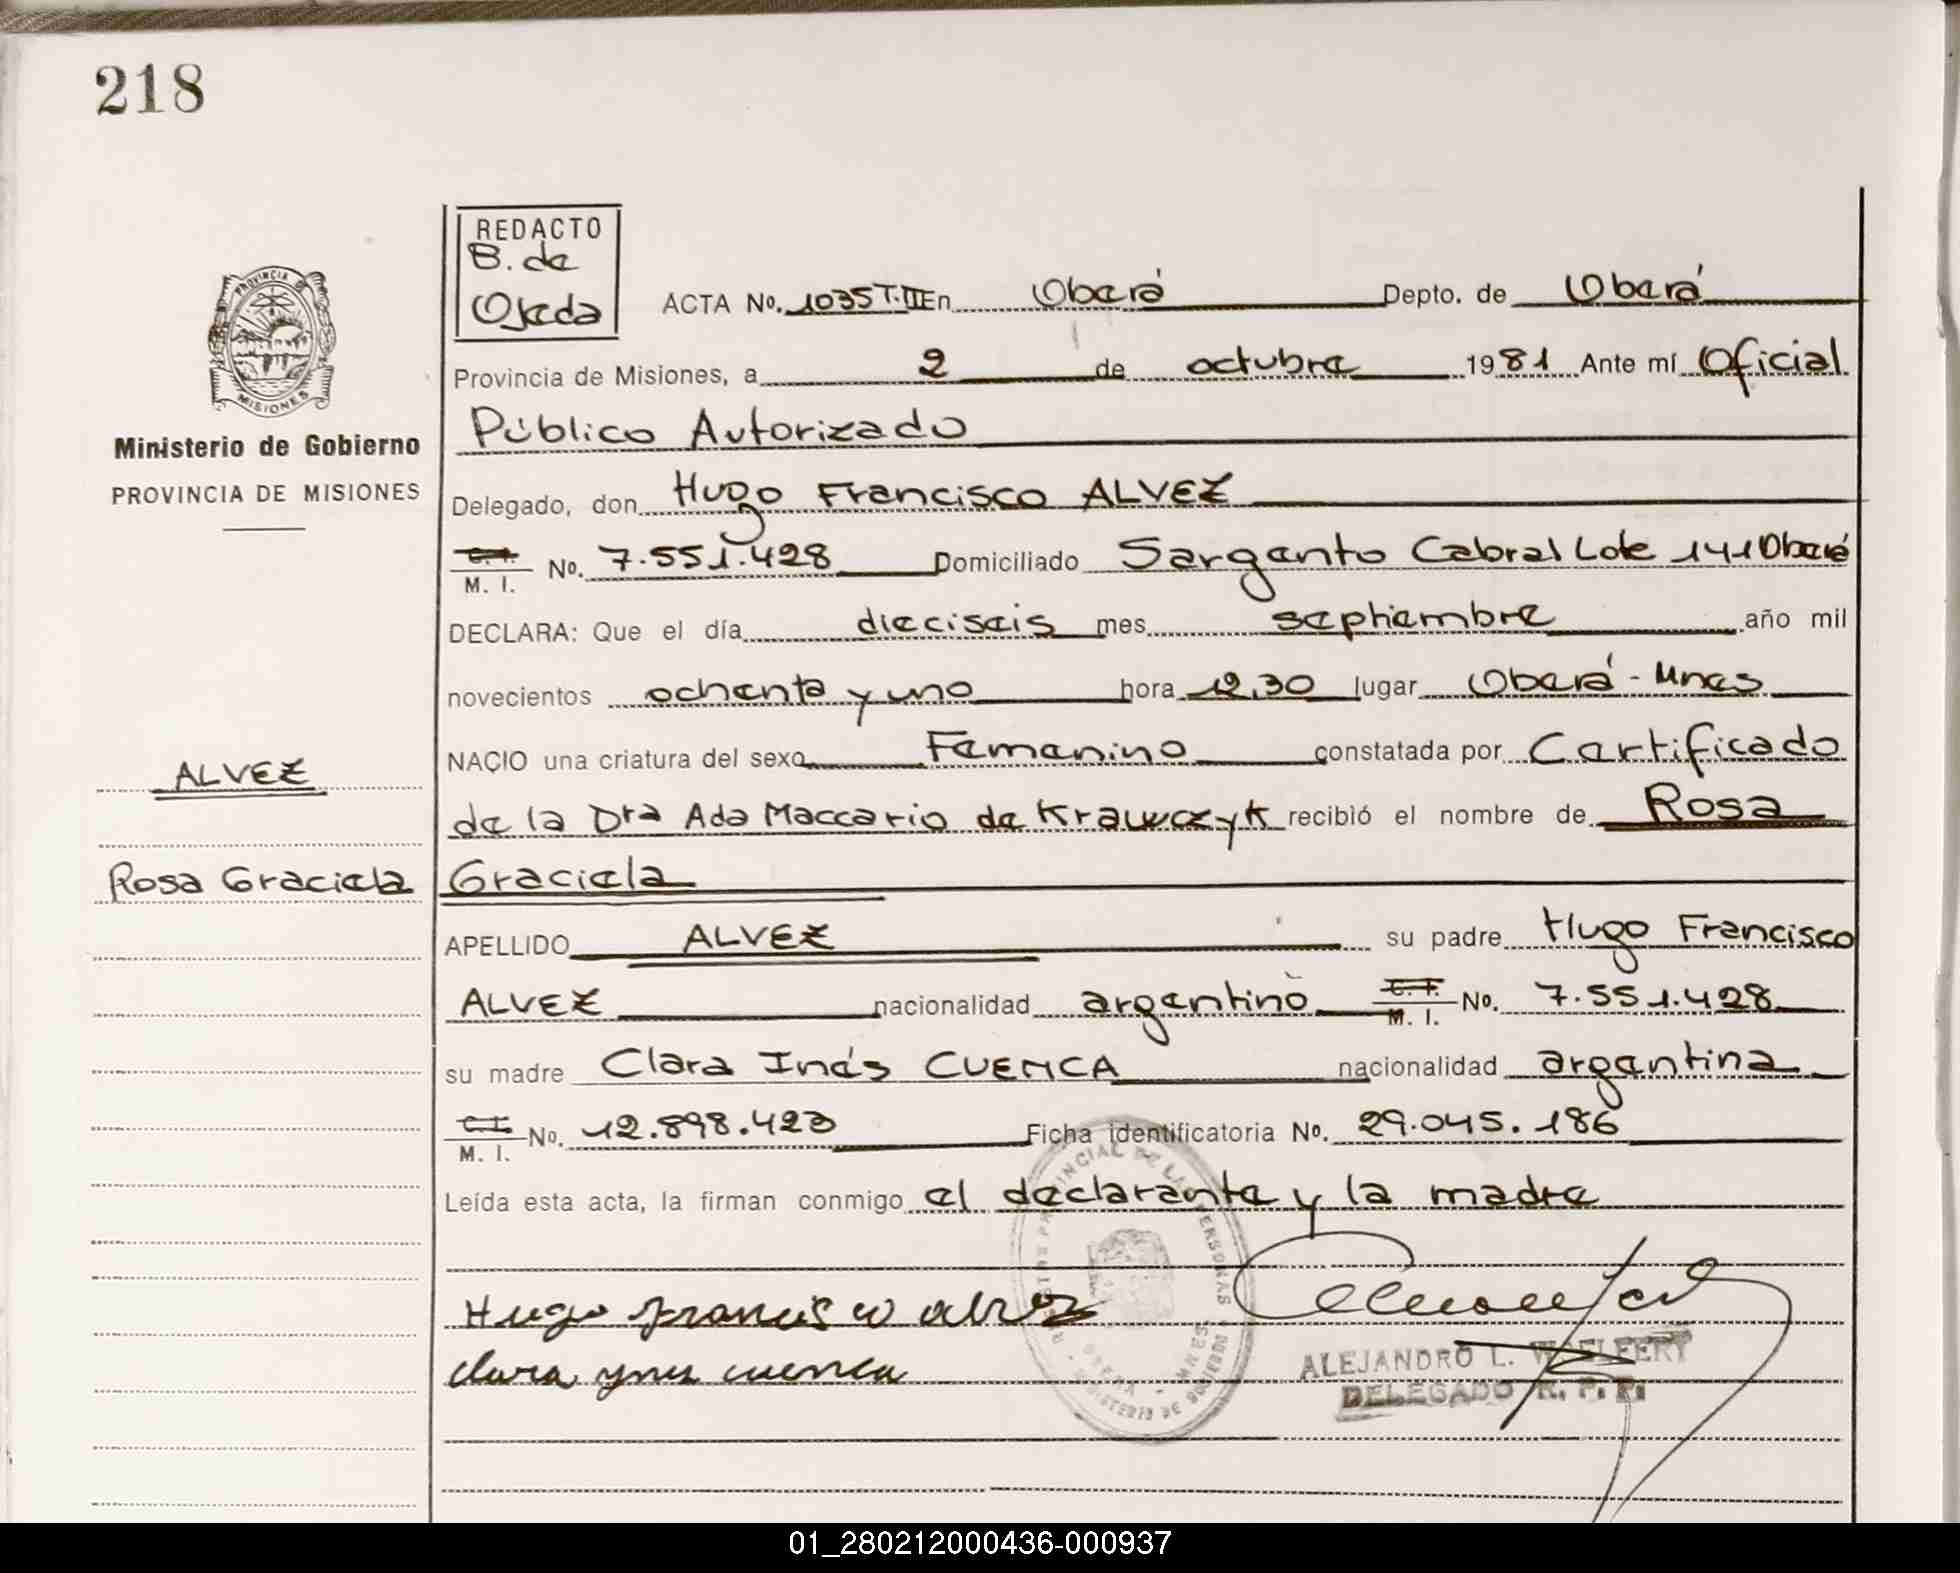 218
REDACTO
B. de
Ojeda
ACTA No. 1035 T. III En Oberá Depto. de Oberá
Provincia de Misiones, a 2 de octubre 1981 Ante mí Oficial
Público Autorizado
Delegado, don Hugo Francisco ALVEZ
C.I.
M. I. No. 7.551.428 Domiciliado Sargento Cabral Lote 141 Oberá
DECLARA: Que el día dieciseis mes septiembre año mil
novecientos ochenta y uno hora 12,30 lugar Oberá - Mnes
NACIO una criatura del sexo Femenino constatada por Certificado
de la Dra Ada Maccario de Krawczyk recibió el nombre de Rosa
Graciela
APELLIDO ALVEZ su padre Hugo Francisco
ALVEZ nacionalidad argentino C. I. M. I. No. 7.551.428
su madre Clara Inés CUENCA nacionalidad argentina
C.I. M. I. No. 12.898.423 Ficha identificatoria No. 29.045.186
Leída esta acta, la firman conmigo el declarante y la madre
Hugo francisco alvez
clara ynes cuenca
ALEJANDRO L. WOELFERT
DELEGADO R. P. P.
PROVINCIA DE
MISIONES
Ministerio de Gobierno
PROVINCIA DE MISIONES
ALVEZ
Rosa Graciela
REGISTRO PROVINCIAL DE LAS PERSONAS
OBERA - MNES.
MINISTERIO DE GOBIERNO
01_280212000436-000937